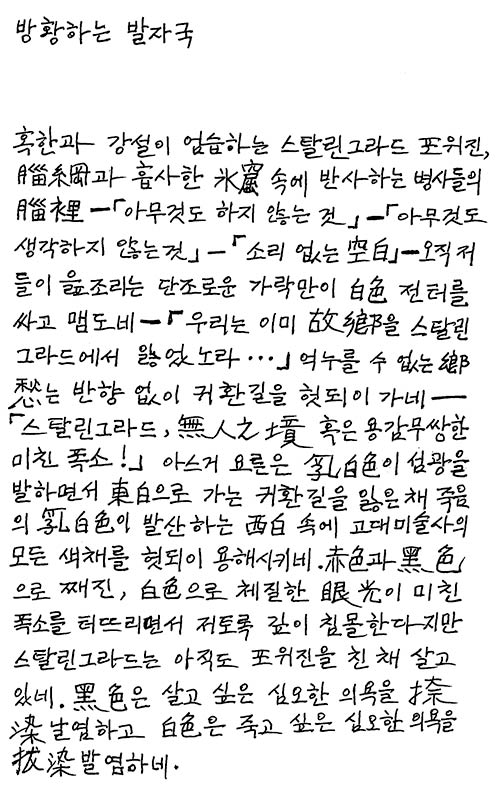 방황하는 발자국
혹한과 강설이 엄습하는 스탈린그라드 포위진,
腦網과 흡사한 氷窟 속에 반사하는 병사들의
腦裡ー「아무것도 하지 않는 것」ー「아무것도
생각하지 않는것」ー「소리 없는 空白」ー오직 저
들이 읊조리는 단조로운 가락만이 白色 전터를
싸고 맴도네ー「우리는 이미 故鄕을 스탈린
그라드에서 잃었노라…」 억누를 수 없는 鄕
愁는 반향 없이 귀환길을 헛되이 가네ー
「스탈린그라드, 無人之墳 혹은 용감무쌍한
미친 폭소!」 아스거 요른은 乳白色이 섬광을
발하면서 東白으로 가는 귀환길을 잃은채 죽음
의 乳白色이 발산하는 西白 속에 고대미술사의
모든 색채를 헛되이 용해시키네. 赤色과 黑色
으로 째진, 白色으로 체질한 眼光이 미친
폭소를 터뜨리면서 저토록 깊이 침몰한다지만
스탈린그라드는 아직도 포위진을 친 채 살고
있네. 黑色은 살고 싶은 심오한 의욕을 捺
染날염하고 白色은 죽고 싶은 심오한 의욕을
拔染발염하네.